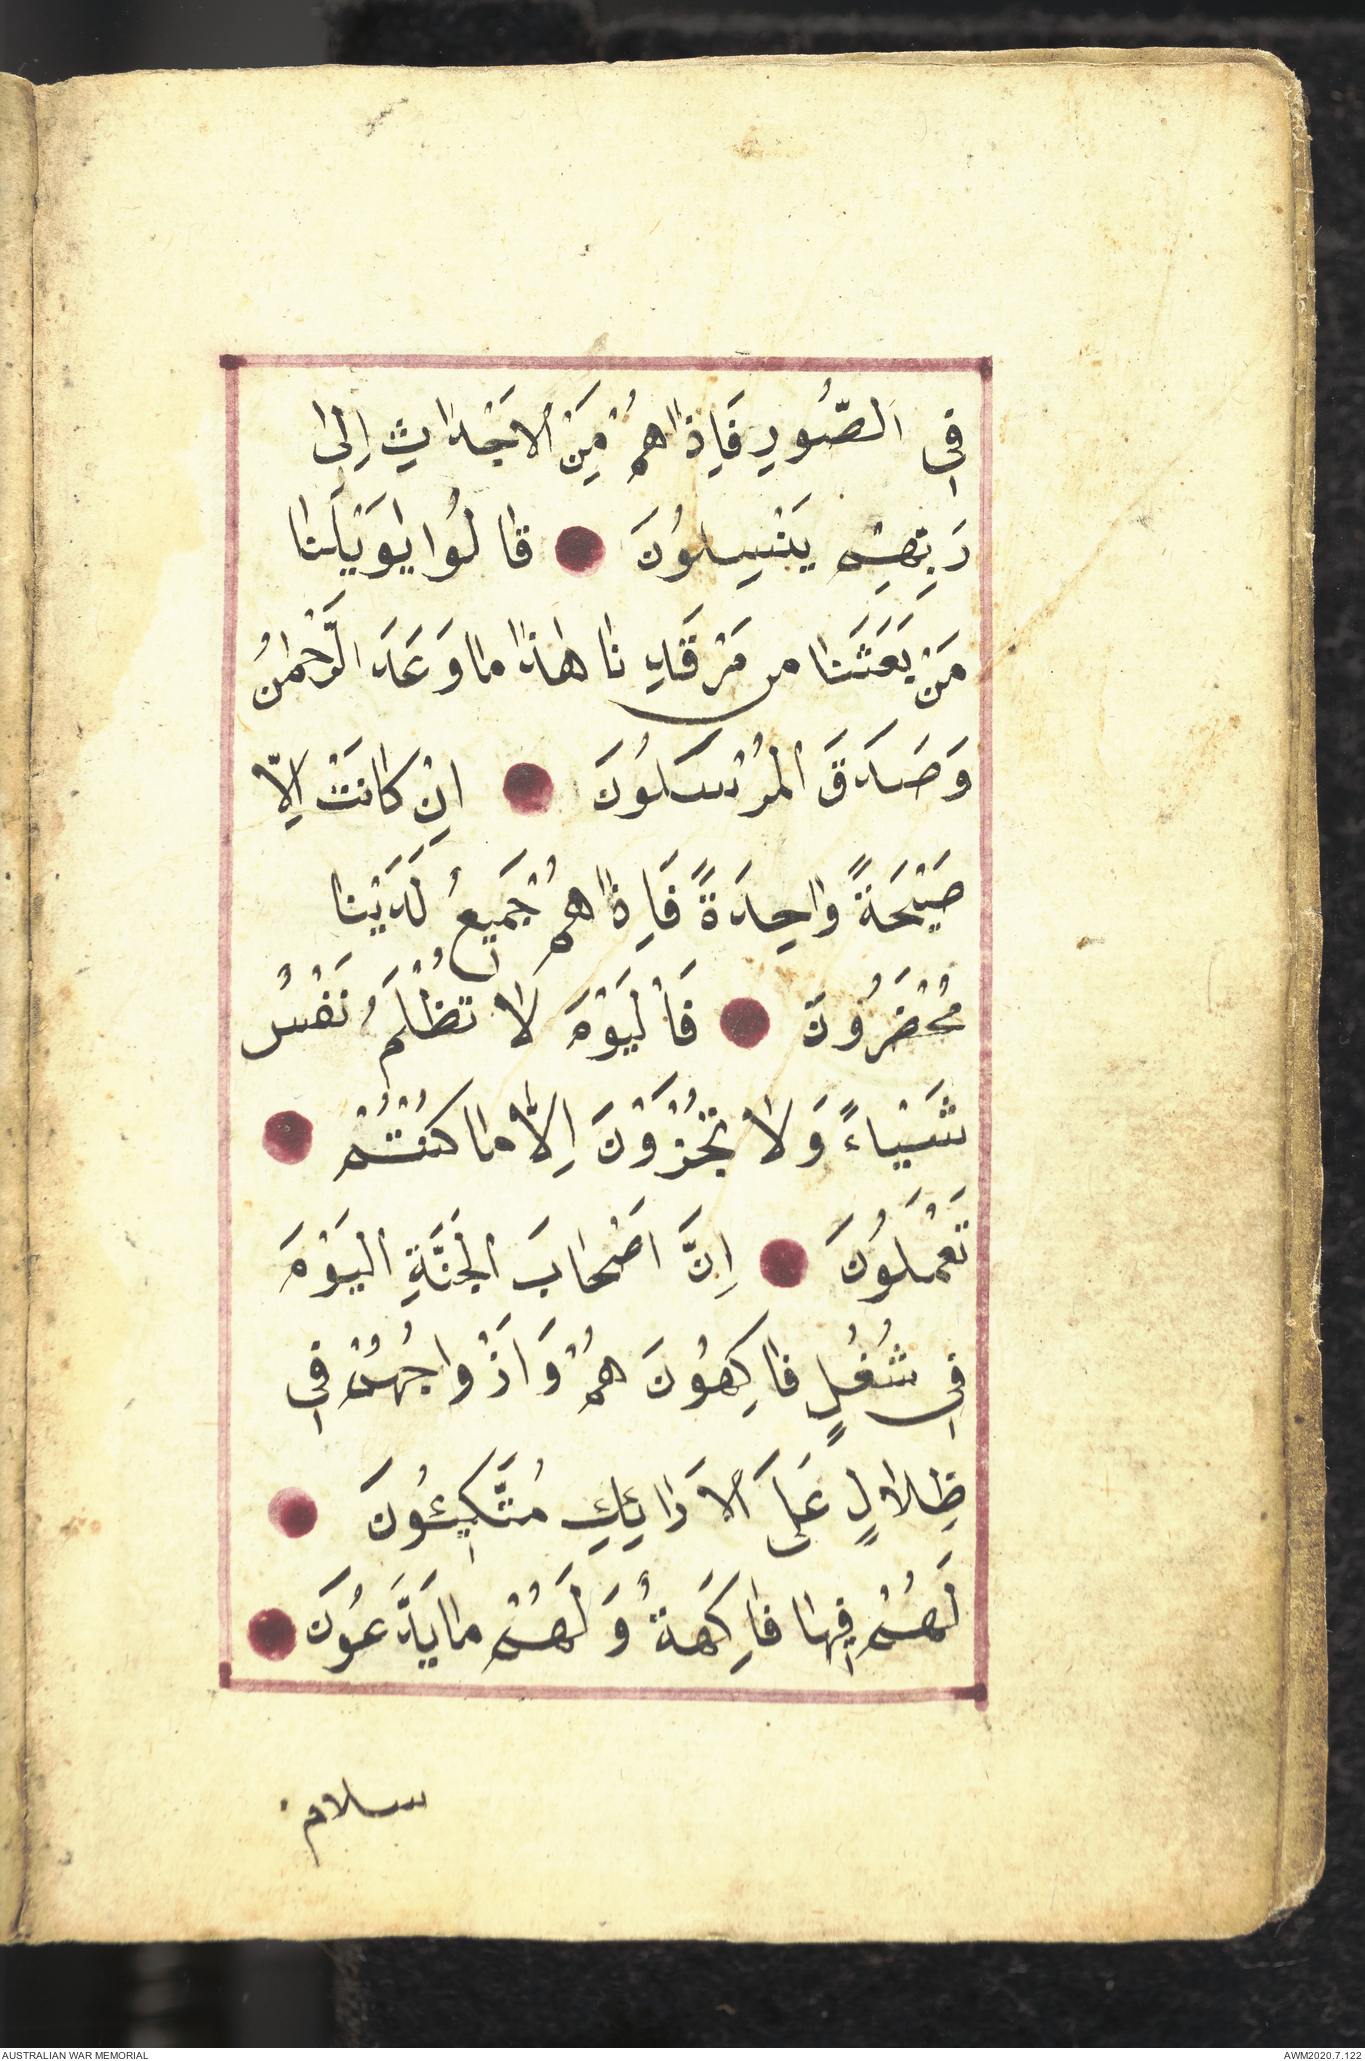 فِي الصُّورِ فَاِذَا هُمْ مِنَ الْاَجْدَاثِ اِلٰى
رَبِّهِمْ يَنْسِلُونَ قَالُوا يٰوَيْلَنَا
مَنْ بَعَثَنَا مِنْ مَرْقَدِنَا هٰذَا مَا وَعَدَ الرَّحْمٰنُ
وَصَدَقَ الْمُرْسَلُونَ اِنْ كَانَتْ اِلَّا
صَيْحَةً وَاحِدَةً فَاِذَا هُمْ جَمِيعٌ لَدَيْنَا
مُحْضَرُونَ فَالْيَوْمَ لَا تُظْلَمُ نَفْسٌ
شَيْاءً وَلَا تُجْزَوْنَ اِلَّا مَا كُنْتُمْ
تَعْمَلُونَ اِنَّ اَصْحَابَ الْجَنَّةِ الْيَوْمَ
فِي شُغُلٍ فَاكِهُونَ هُمْ وَاَزْوَاجُهُمْ فِي
ظِلَالٍ عَلَى الْاَرَائِكِ مُتَّكِئُونَ
لَهُمْ فِيهَا فَاكِهَةٌ وَلَهُمْ مَا يَدَّعُونَ
سلام
AUSTRALIAN WAR MEMORIAL
AWM2020.7.122